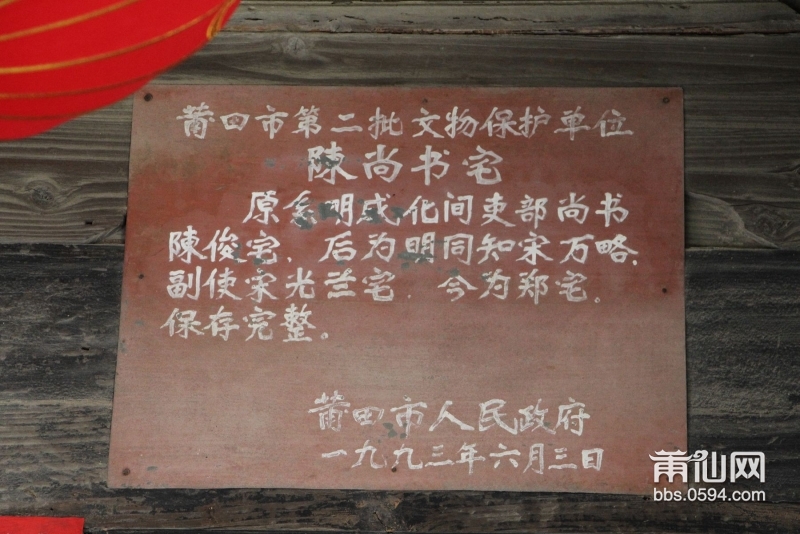 莆田市第二批文物保护单位
陳尚书宅
原系明成化间吏部尚书
陳俊宅，后为明同知宋万略，
副使宋光兰宅，今为郑宅。
保存完整。
莆田市人民政府
一九九三年六月三日
莆仙网
bbs.0594.com